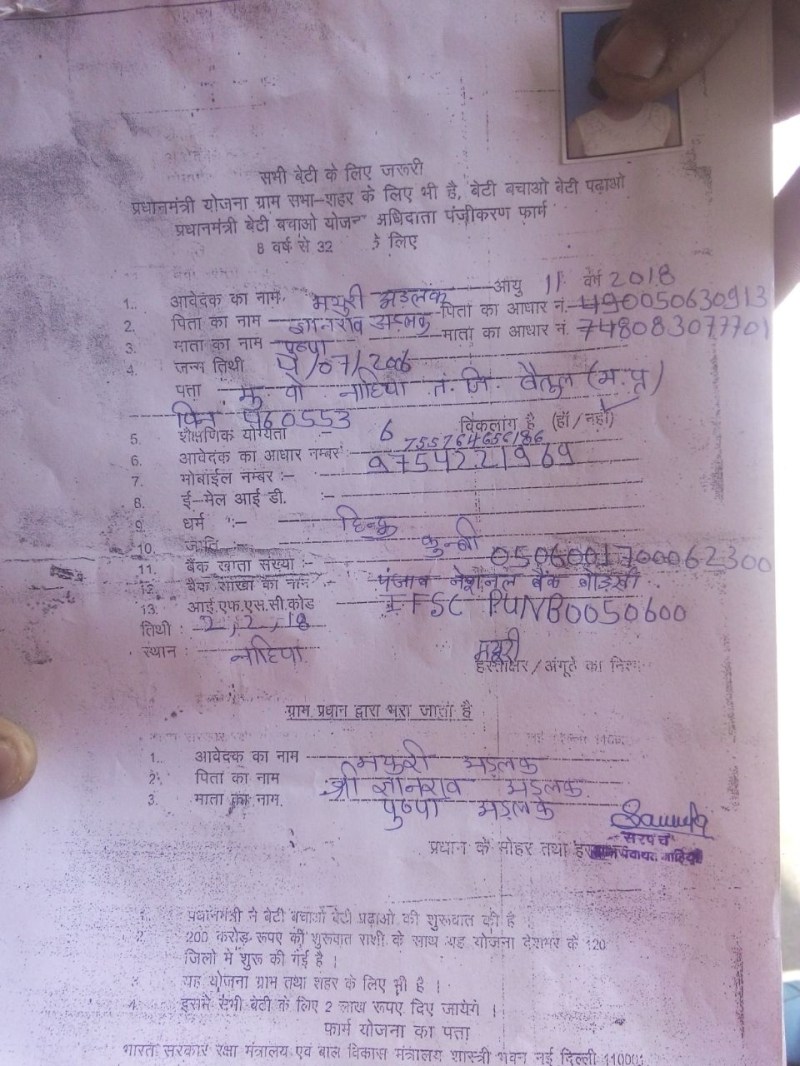 सभी बेटी के लिए जरूरी
प्रधानमंत्री योजना ग्राम सभा-शहर के लिए भी है, बेटी बचाओ बेटी पढ़ाओ
प्रधानमंत्री बेटी बचाओ योजन अधिदाता पंजीकरण फार्म
8 वर्ष से 32 के लिए
1. आवेदक का नाम मयुरी अडलक आयु 11 वर्ष 2018
2. पिता का नाम ज्ञानराव अडलक पिता का आधार नं. 490050630913
3. माता का नाम पुष्पा माता का आधार नं. 748083077701
4. जन्म तिथी /07/2006
पता मु पो नाहिया त. जि. बैतुल (म.प्र)
पिन 460553
5. शैक्षणिक योग्यता 6 विकलांग है (हॉ / नहीं)
6. आवेदक का आधार नम्बर :- 755764656186
7. मोबाईल नम्बर :- 9754221969
8. ई-मेल आई डी. :-
9. धर्म :- हिन्दु
10. जाति :- कुन्बी
11. बैंक खाता संख्या :- 0506001700062300
12. बैंक साखा का नाम :- पंजाब नेशनल बैंक
13. आई.एफ.एस.सी.कोड IFSC PUNB0050600
तिथी : 2, 2, 18
स्थान : नाहिया मयुरी
हस्ताक्षर / अंगूठे का निश
ग्राम प्रधान द्वारा भरा जाता है
1. आवेदक का नाम मयुरी अडलक
2. पिता का नाम श्री ज्ञानराव अडलक
3. माता का नाम. पुष्पा अडलक
सरपंच
प्रधान के मोहर तथा
1. प्रधानमंत्री ने बेटी बचाओ बेटी पढ़ाओ की शुरूवात की है
2. 200 करोड़ रूपए की शुरूवात राशी के साथ यह योजना देशभर के 120
जिलो मे शुरू की गई है।
3. यह योजना ग्राम तथा शहर के लिए भी है।
4. इसमे सभी बेटी के लिए 2 लाख रूपए दिए जायेगे।
फार्म योजना का पता
भारत सरकार रक्षा मंत्रालय एवं बाल विकास मंत्रालय शास्त्री भवन नई दिल्ली 110001